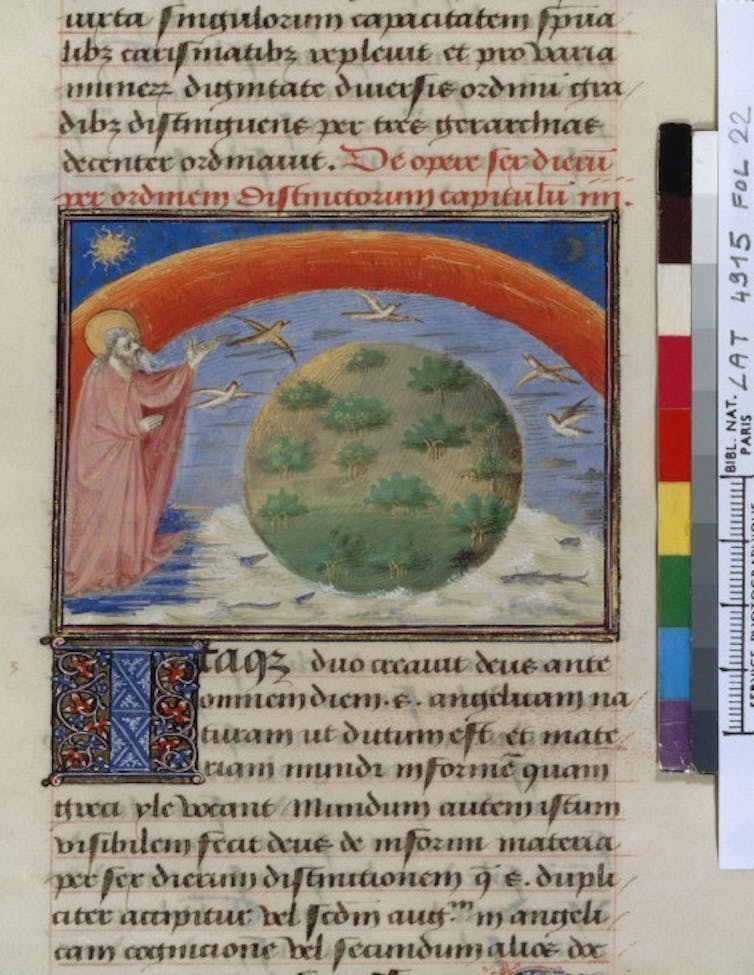 iuxta singulorum capacitatem spũa
libz carismatibz repleuit et pro varia
munerz dignitate diuersis ordinũ gra
dibz distinguens per tres gerarchias
decenter ordinauit. De opere sex dierũ
per ordinem distinctorum capitulũ iiii.
Itaqz duo creauit deus ante
omnem diem .s. angelicam na
turam ut dictum est et mate
riam mundi informẽ quam
greci yle vocant Mundum autem istum
visibilem fecit deus de informi materia
per sex dierum distinctionem q̃ s. dupli
citer accipitur vel scdm aug.m in angeli
cam cognicione vel secundum alios
BIBL. NAT. PARIS
LAT 4915 FOL 22